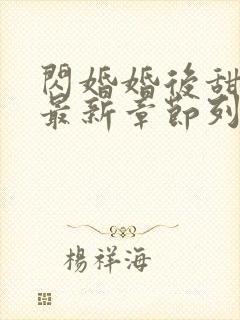 閃婚婚後甜
最新章節列
楊祥海